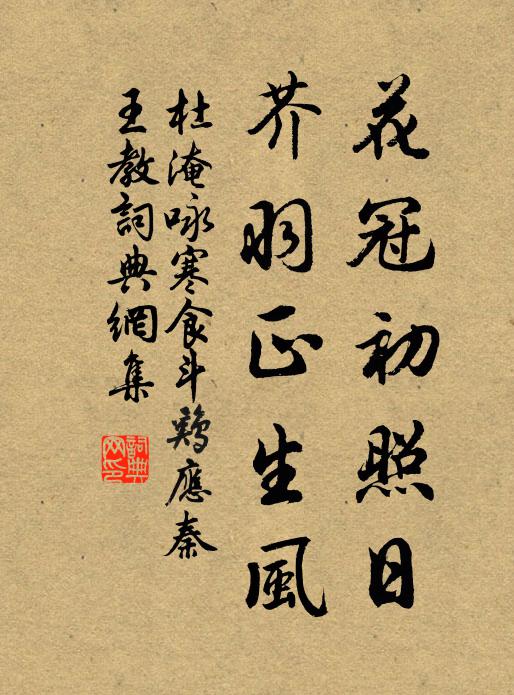 花冠初照日
芥羽正生風
杜淹咏寒食斗鷄應秦
王教詞典網集
詞典网印